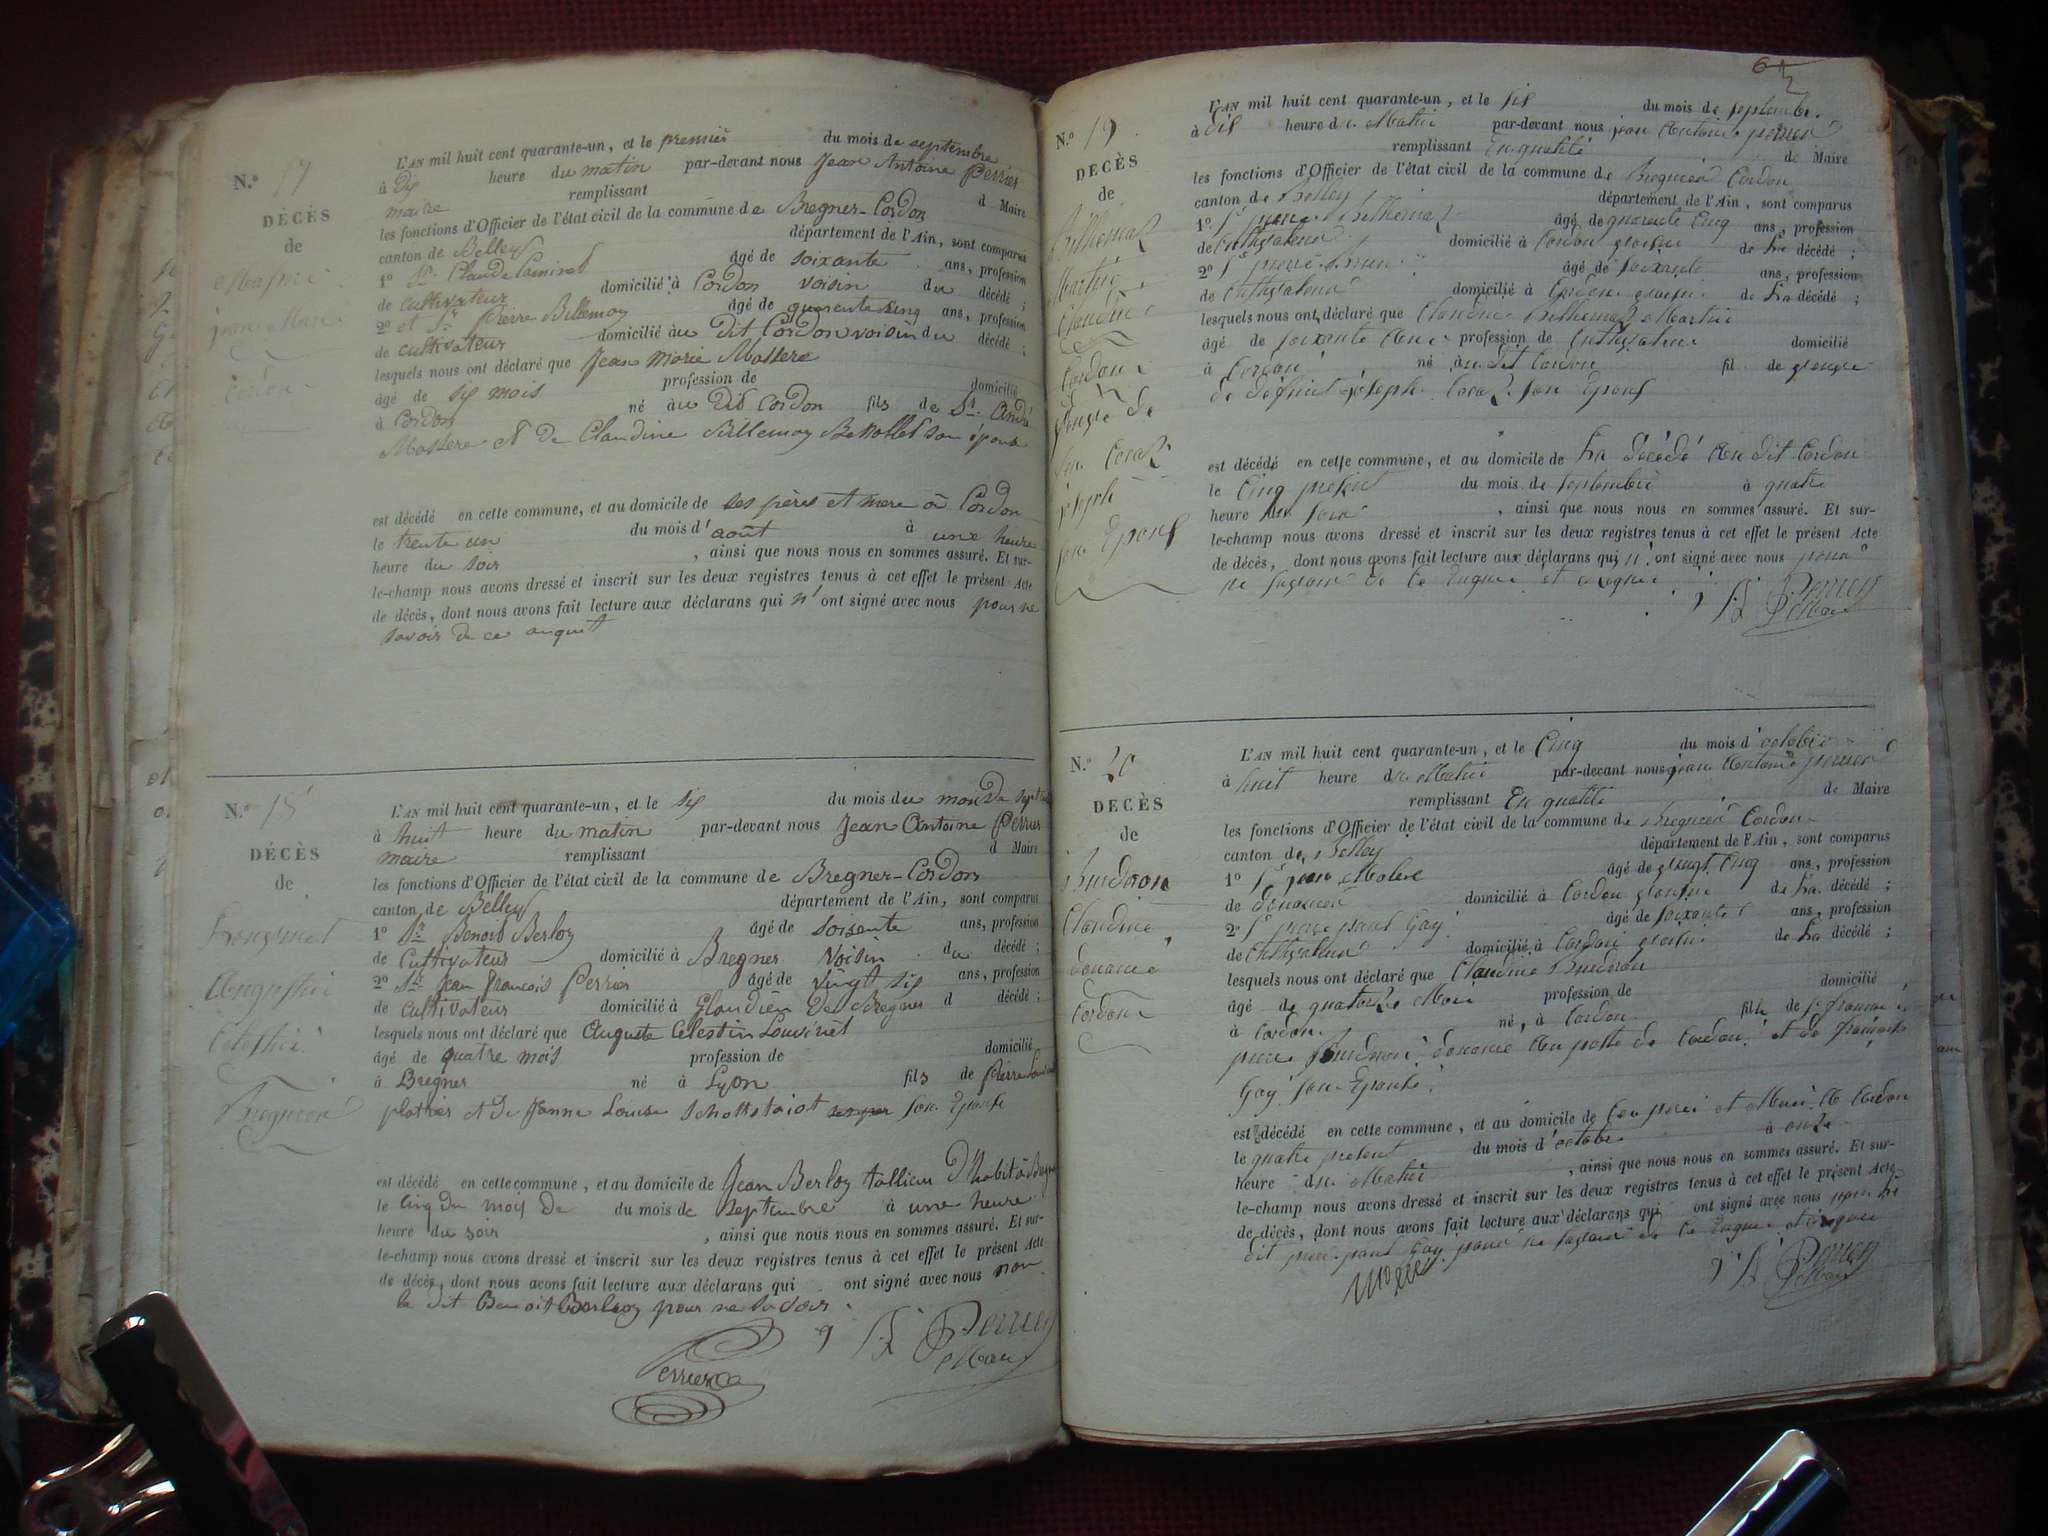 N.º 17
DÉCÈS
de
jean Marie
Cordon
L'AN mil huit cent quarante-un, et le premier du mois de septembre
à dix heure du matin par-devant nous Jean Antoine Perrier
maire remplissant d Maire
les fonctions d'Officier de l'état civil de la commune de Bregner-Cordon
canton de Belley département de l'Ain, sont comparus
1º Sr. Claude âgé de soixante ans, profession
de cultivateur domicilié à Cordon voisin du décédé ;
2º et Sr. Pierre Billemoz âgé de quarente sinq ans, profession
de cultivateur domicilié àu dit Cordon voisin du décédé ;
lesquels nous ont déclaré que Jean Marie Massere
âgé de six mois profession de domicilié
à Cordon né àu dit Cordon fils de Sr. André
Massere et de Claudine Billemoz son épouse
est décédé en cette commune, et au domicile de ses pères et mere à Cordon
le trente un du mois d'août à une heure
heure du soir , ainsi que nous nous en sommes assuré. Et sur-
le-champ nous avons dressé et inscrit sur les deux registres tenus à cet effet le présent Acte
de décès, dont nous avons fait lecture aux déclarans qui n'ont signé avec nous pour ne
savoir de ce anquit
N.º 18
DÉCÈS
de
Augustin
Celestin
Bregnier
L'AN mil huit cent quarante-un, et le six du mois du mois de sept
à huit heure du matin par-devant nous Jean Antoine Perrier
maire remplissant d Maire
les fonctions d'Officier de l'état civil de la commune de Bregner-Cordon
canton de Belley département de l'Ain, sont comparus
1º Sr. Benoit Berloz âgé de soisente ans, profession
de cultivateur domicilié à Bregner voisin du décédé ;
2º Sr. Jean François Perrier âgé de vingt six ans, profession
de cultivateur domicilié à Glandieu de Bregner d décédé ;
lesquels nous ont déclaré que Auguste Celestin Louvinet
âgé de quatre mois profession de domicilié
à Bregner né à Lyon fils de Pierre
platrier et de Jeanne Louise son Epouse
est décédé en cette commune, et au domicile de Jean Berloz tallieur d'habit à Bregner
le cinq du mois de du mois de Septembre à une heure
heure du soir , ainsi que nous nous en sommes assuré. Et sur-
le-champ nous avons dressé et inscrit sur les deux registres tenus à cet effet le présent Acte
de décès, dont nous avons fait lecture aux déclarans qui ont signé avec nous non
le dit Benoit Berloz pour ne savoir
Perrier
Perrier
Maire
N.º 19
DECÈS
de
Bilhemaz
Marthie
Claudine
Cordon
Joseph
son Epous
L'AN mil huit cent quarante-un, et le six du mois de septembre
à dix heure de Matin par-devant nous jean Antoine perrier
remplissant En qualité de Maire
les fonctions d'Officier de l'état civil de la commune de Bregnier Cordon
canton de Belley département de l'Ain, sont comparus
1º Sr pierre Bilhemaz âgé de quarente Cinq ans, profession
de Culthivateur domicilié à Cordon de La décédé ;
2º Sr pierre âgé de soixante ans, profession
de Culthivateur domicilié à Cordon de La décédé ;
lesquels nous ont déclaré que Claudine Bilhemaz Marthie
âgé de soixante profession de Culthivatrice domicilié
à Cordon né àu dit Cordon fil de
de défunt joseph Cocaz son Epous
est décédé en cette commune, et au domicile de La décédé Au dit Cordon
le Cinq présent du mois de Septembre à quatre
heure du soir , ainsi que nous nous en sommes assuré. Et sur-
le-champ nous avons dressé et inscrit sur les deux registres tenus à cet effet le présent Acte
de décès, dont nous avons fait lecture aux déclarans qui n'ont signé avec nous pour
ne savoir de ce Enquis et requis
Perrier
Maire
N.º 20
DECÈS
de
Claudine
douane
Cordon
L'AN mil huit cent quarante-un, et le Cinq du mois d'octobre
à huit heure du Matin par-devant nous jean Antoine perrier
remplissant En qualité de Maire
les fonctions d'Officier de l'état civil de la commune de Bregnier Cordon
canton de Belley département de l'Ain, sont comparus
1º Sr âgé de Cinq ans, profession
de domicilié à Cordon de La décédé ;
2º Sr pierre paul Gay âgé de soixante ans, profession
de Culthivateur domicilié à Cordon de La décédé ;
lesquels nous ont déclaré que Claudine
âgé de quatorze Mois profession de domicilié
à Cordon né, à Cordon fille de
pierre douane Au poste de Cordon et de
Gay son Epouse
est décédé en cette commune, et au domicile de à Cordon
le quatre présent du mois d'octobre à onze
heure du Matin , ainsi que nous nous en sommes assuré. Et sur-
le-champ nous avons dressé et inscrit sur les deux registres tenus à cet effet le présent Acte
de décès, dont nous avons fait lecture aux déclarans qui ont signé avec nous
dit pierre paul Gay pour ne savoir de ce Enquis et requis
Perrier
Maire